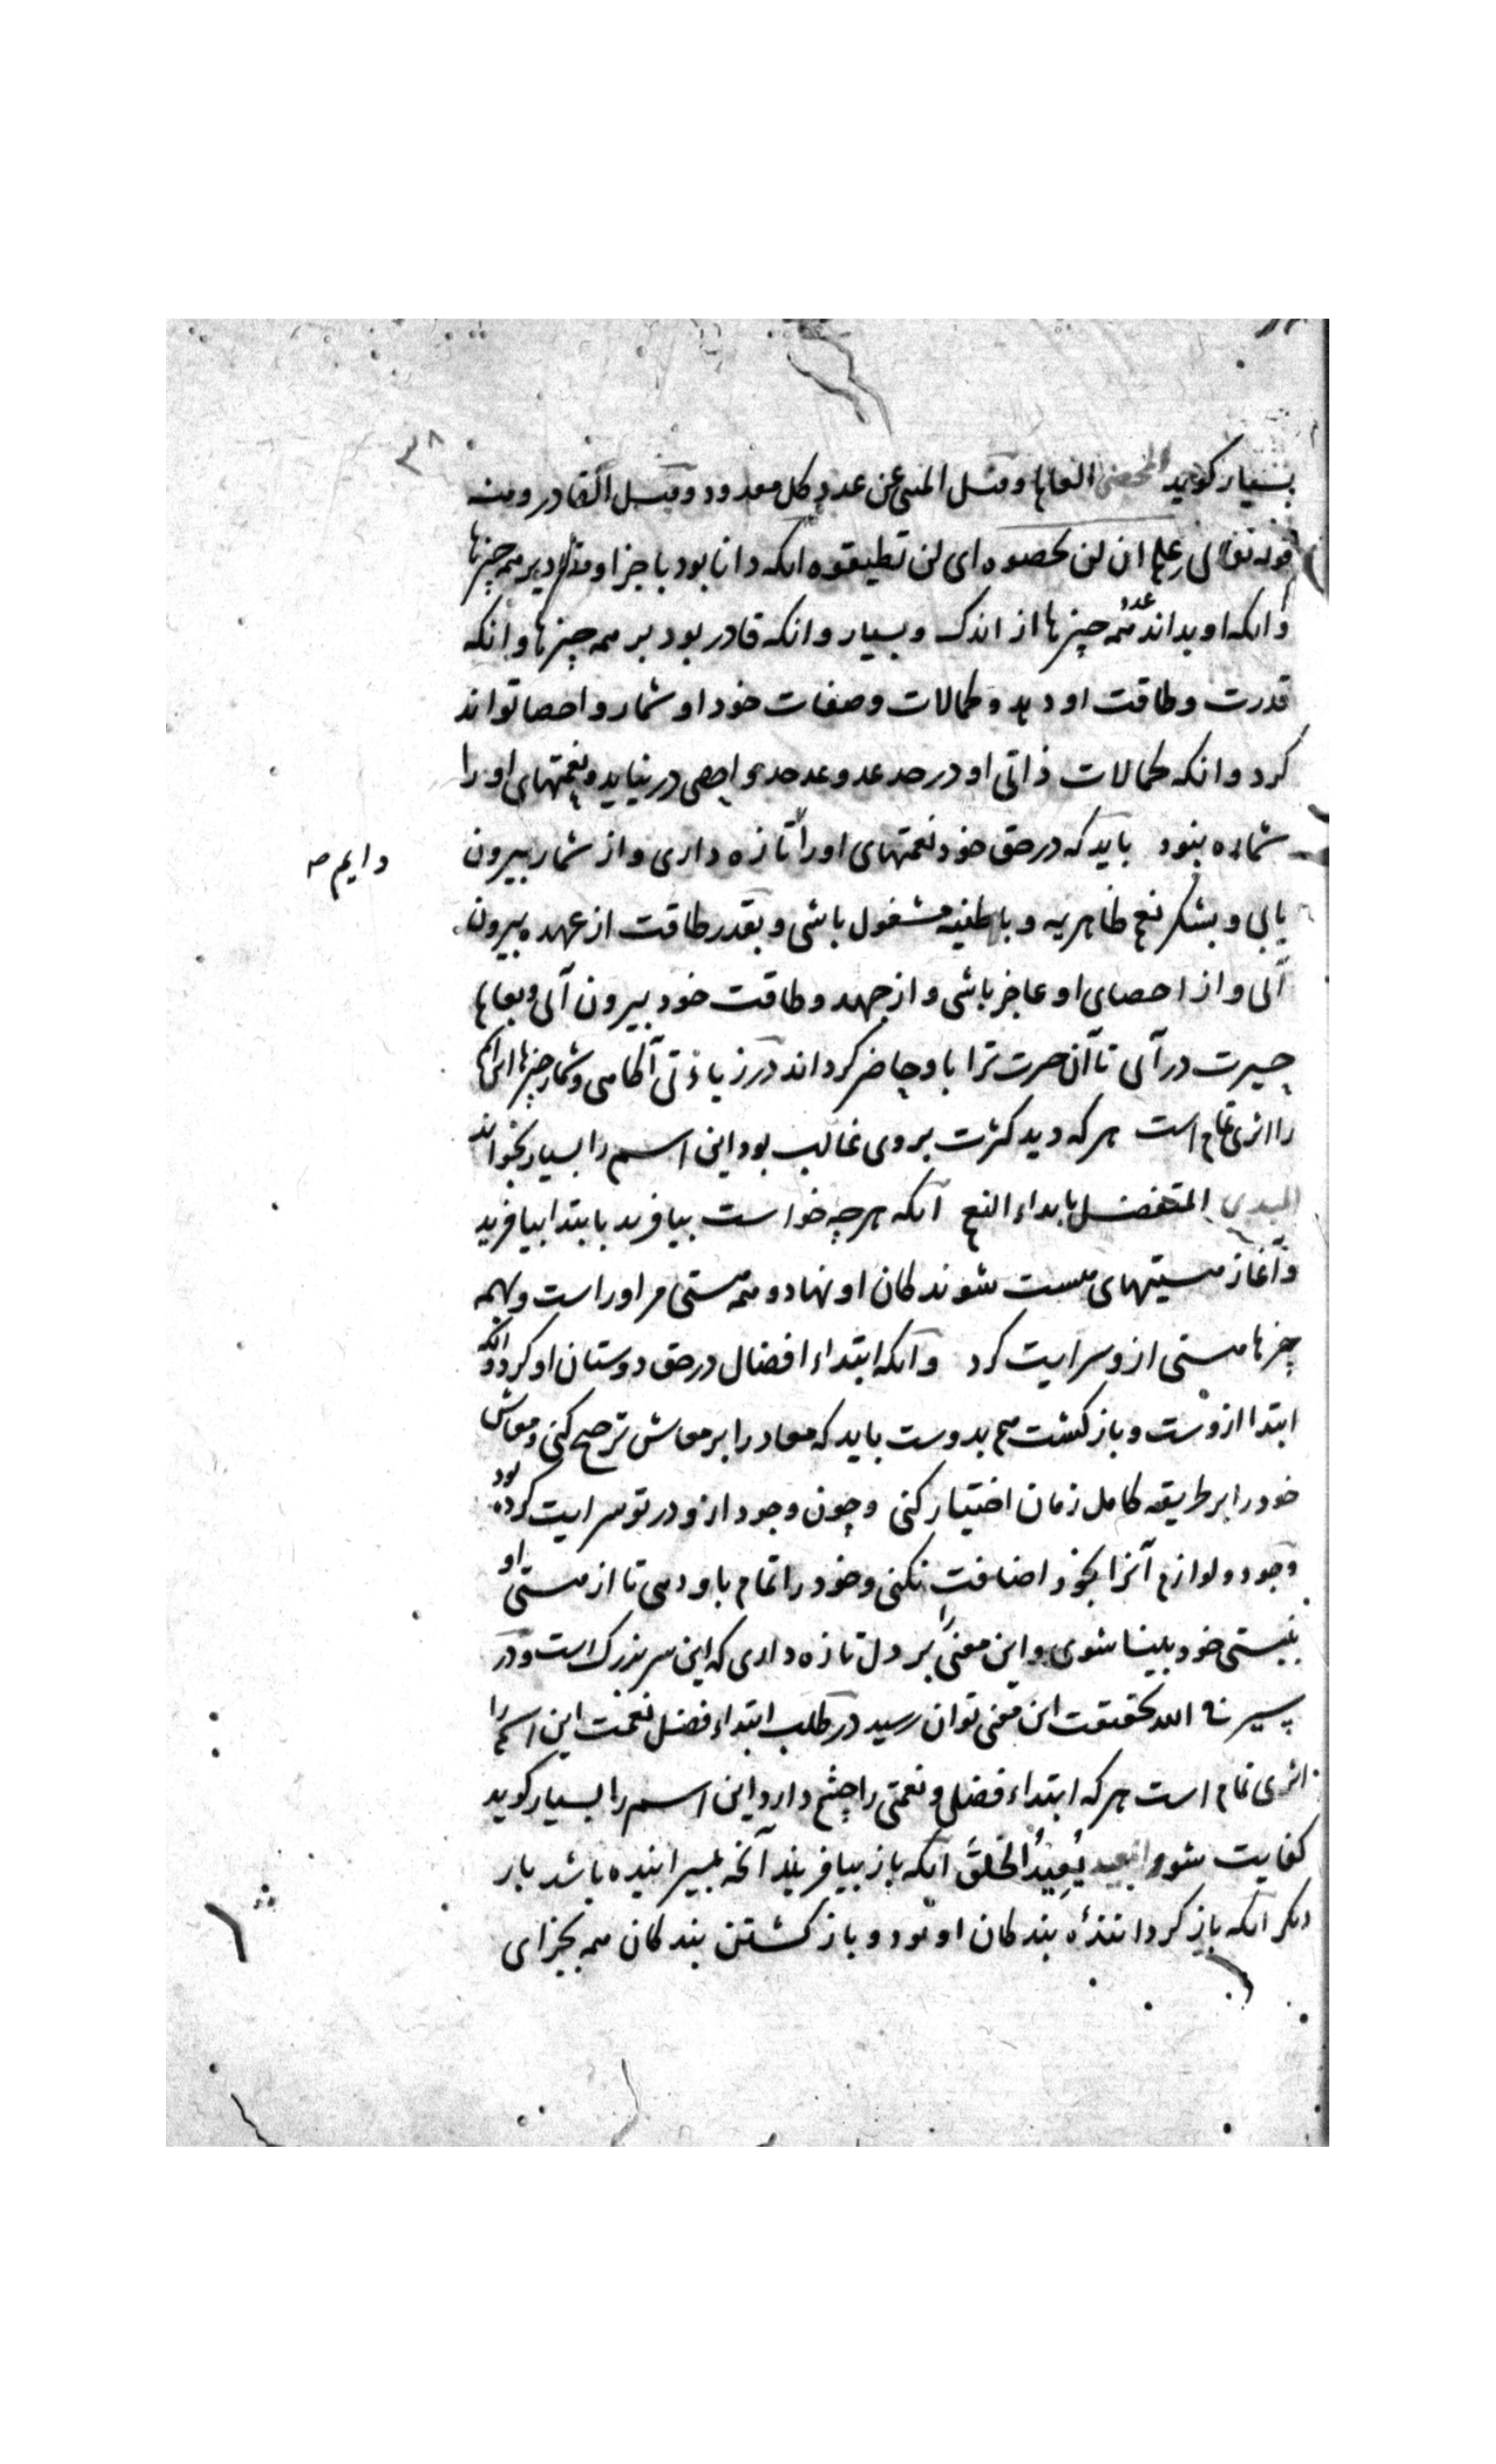 ۳۸
بسیار کوید المحصی العاها وقیل المنبی عن عدد کل معدود وقیل القادر ومنه
قوله تعالی علم ان لن تحصوه ای لن تطیقوه انکه دانا بود باجزا ومقادیر همه چیزها
وانکه او بداند عدد همه چیزها از اندک وبسیار وانکه قادر بود بر همه چیزها وانکه
قدرت وطاقت او دهد وکمالات وصفات خود او شمار واحصا تواند
کرد وانکه کمالات ذاتی او در حد عد وعد حد واحصی در نیاید ونعمتهای او را
شماره نبود باید که در حق خود نعمتهای او را تازه داری واز شمار بیرون
دایم صح
یابی وبشکر نعم ظاهریه وباطنیه مشغول باشی وبقدر طاقت از عهده بیرون
آئی واز احصای او عاجز باشی واز جهد وطاقت خود بیرون آئی و
حیرت در آئی تا آن حیرت ترا باو حاضر کرداند در زیادتی آکاهی وشمار چیزها این اسم
را اثری تمام است هر که دید کثرت بر وی غالب بود این اسم را بسیار بخواند
المبدی المتفضل بابداء النعم آنکه هرچه خواست بیافرید بابتدا بیافرید
وآغاز هستیهای هست شوندکان او نهاد وهمه هستی مر او راست وبهمه
چیزها هستی ازو سرایت کرد وانکه ابتداء افضال در حق دوستان او کرد وانکه
ابتدا ازوست وبازکشت هم بدوست باید که معاد را بر معاش ترجیح کنی ومعاش
خود را بر طریقه کامل زمان اختیار کنی وچون وجود ازو در تو سرایت کرده بود
وجود ولوازم آنرا بخود اضافت نکنی وخود را تمام باو دهی تا از هستی او
بنیستی خود بینا شوی واین معنی را بر دل تازه داری که این سر بزرک است ودر
سیر فی الله بحقیقت این معنی توان رسید در طلب ابتداء فضل نعمت این اسم را
اثری تمام است هر که ابتداء فضلی ونعمتی را چشم دارد این اسم را بسیار کوید
کفایت شود المعید یُعِیدُ الخلقَ آنکه باز بیافریند آنچه بمیرانیده باشد بار
دیکر انکه باز کرداننده بندکان او بود وبازکشتن بندکان همه بجزای